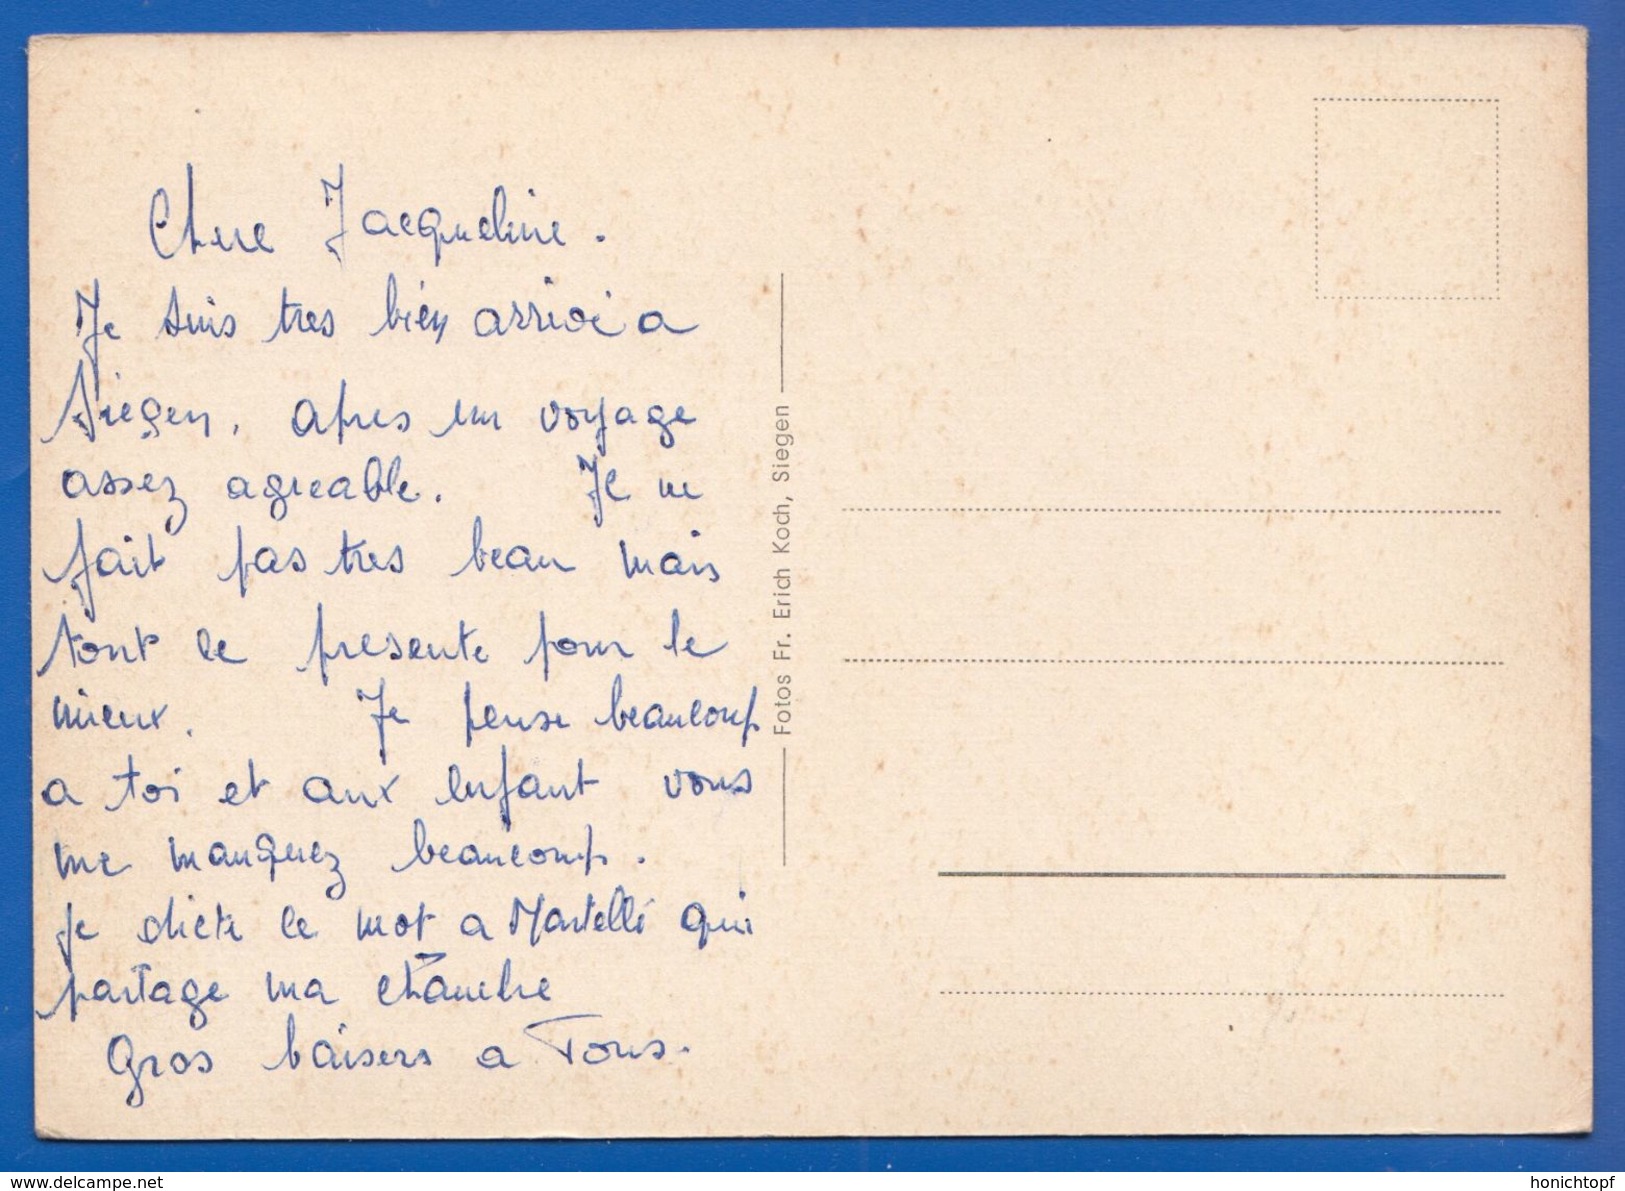 Chere Jacqueline.
Je suis tres bien arrivé a
Siegen, apres un voyage
assez agreable. Je ne
fait pas tres beau mais
tout ce presente pour le
mieux. Je pense beaucoup
a toi et aux enfant vous
me manquez beaucoup.
je dicte ce mot a Martelli qui
partage ma chambre
Gros baisers a Tous.
Fotos Fr. Erich Koch, Siegen
www.delcampe.net
honichtopf